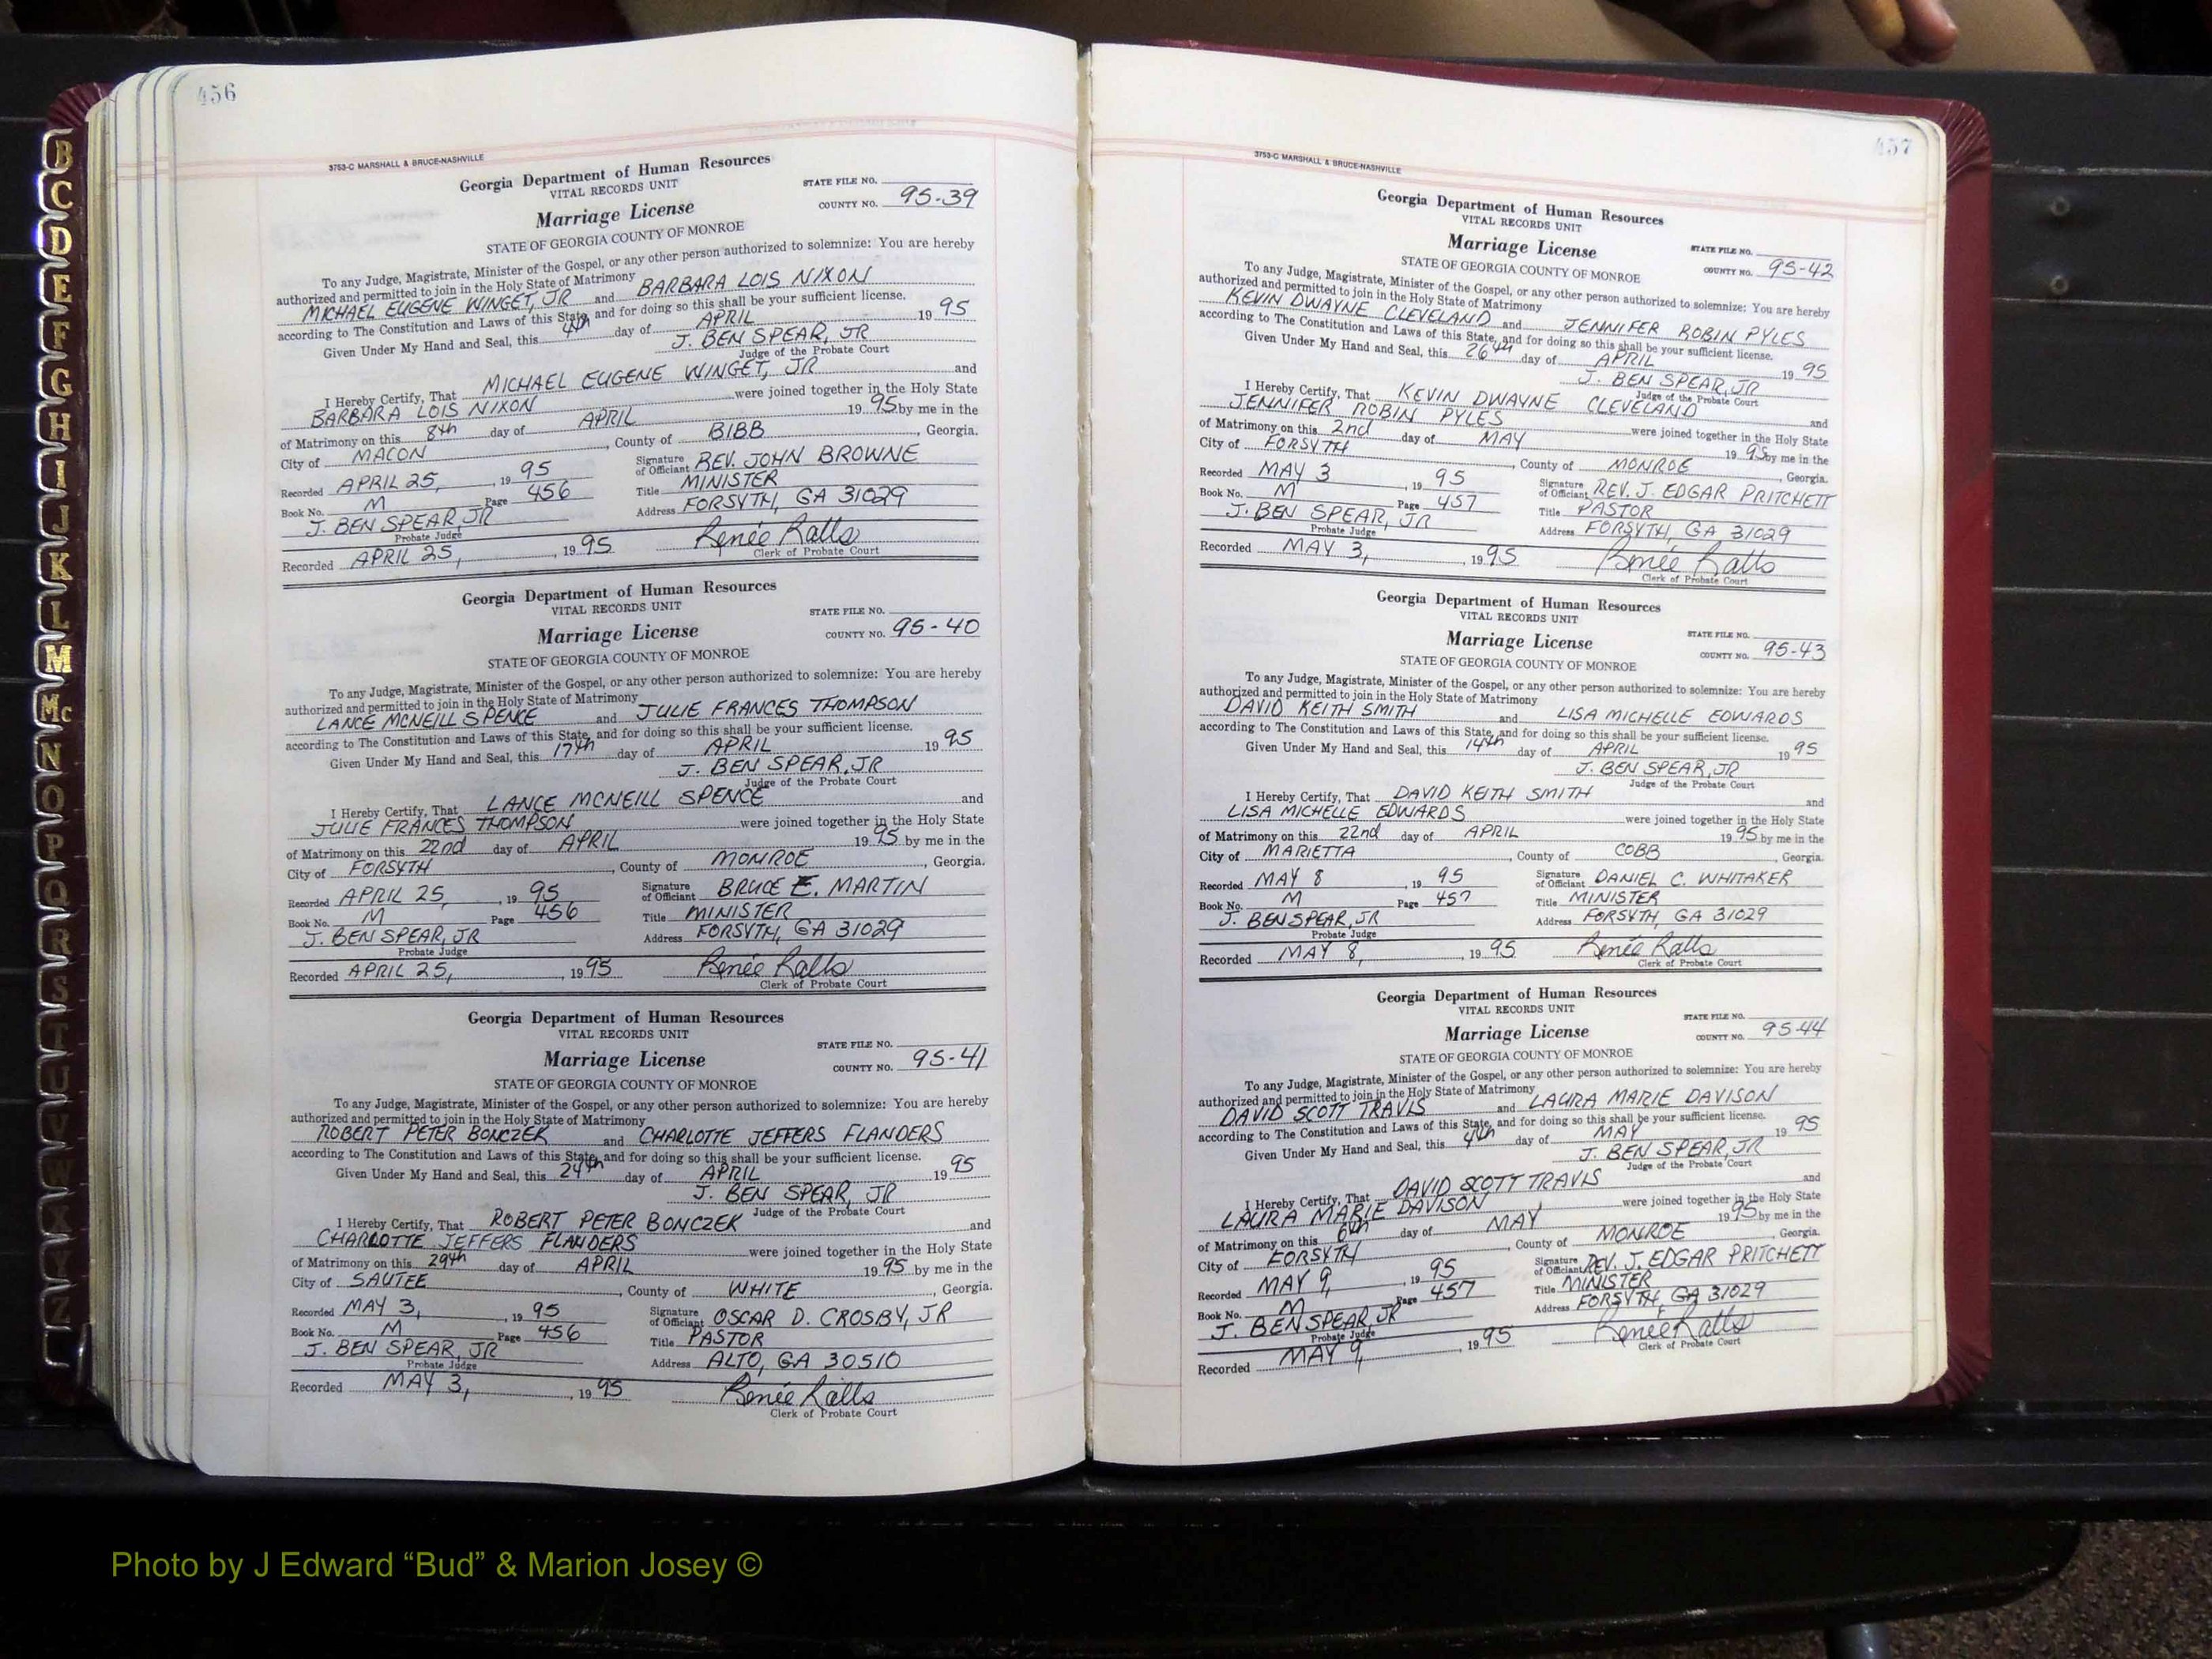 B
C
D
E
F
G
H
I
J
K
L
M
Mc
N
O
P
Q
R
S
T
U
V
W
X
Y
Z
456
3753-C MARSHALL & BRUCE-NASHVILLE
Georgia Department of Human Resources
VITAL RECORDS UNIT
STATE FILE NO.
Marriage License
COUNTY NO. 95-39
STATE OF GEORGIA COUNTY OF MONROE
To any Judge, Magistrate, Minister of the Gospel, or any other person authorized to solemnize: You are hereby
authorized and permitted to join in the Holy State of Matrimony
MICHAEL EUGENE WINGET, JR and BARBARA LOIS NIXON
according to The Constitution and Laws of this State, and for doing so this shall be your sufficient license.
Given Under My Hand and Seal, this 4th day of APRIL 1995
J. BEN SPEAR, JR
Judge of the Probate Court
I Hereby Certify, That MICHAEL EUGENE WINGET, JR and
BARBARA LOIS NIXON were joined together in the Holy State
of Matrimony on this 8th day of APRIL 1995 by me in the
City of MACON, County of BIBB, Georgia.
Recorded APRIL 25, 1995 Signature of Officiant REV. JOHN BROWNE
Book No. M Page 456 Title MINISTER
J. BEN SPEAR, JR Address FORSYTH, GA 31029
Probate Judge
Recorded APRIL 25, 1995 Renée Ralls
Clerk of Probate Court
Georgia Department of Human Resources
VITAL RECORDS UNIT
STATE FILE NO.
Marriage License
COUNTY NO. 95-40
STATE OF GEORGIA COUNTY OF MONROE
To any Judge, Magistrate, Minister of the Gospel, or any other person authorized to solemnize: You are hereby
authorized and permitted to join in the Holy State of Matrimony
LANCE MCNEILL SPENCE and JULIE FRANCES THOMPSON
according to The Constitution and Laws of this State, and for doing so this shall be your sufficient license.
Given Under My Hand and Seal, this 17th day of APRIL 1995
J. BEN SPEAR, JR
Judge of the Probate Court
I Hereby Certify, That LANCE MCNEILL SPENCE and
JULIE FRANCES THOMPSON were joined together in the Holy State
of Matrimony on this 22nd day of APRIL 1995 by me in the
City of FORSYTH, County of MONROE, Georgia.
Recorded APRIL 25, 1995 Signature of Officiant BRUCE E. MARTIN
Book No. M Page 456 Title MINISTER
J. BEN SPEAR, JR Address FORSYTH, GA 31029
Probate Judge
Recorded APRIL 25, 1995 Renée Ralls
Clerk of Probate Court
Georgia Department of Human Resources
VITAL RECORDS UNIT
STATE FILE NO.
Marriage License
COUNTY NO. 95-41
STATE OF GEORGIA COUNTY OF MONROE
To any Judge, Magistrate, Minister of the Gospel, or any other person authorized to solemnize: You are hereby
authorized and permitted to join in the Holy State of Matrimony
ROBERT PETER BONCZEK and CHARLOTTE JEFFERS FLANDERS
according to The Constitution and Laws of this State, and for doing so this shall be your sufficient license.
Given Under My Hand and Seal, this 24th day of APRIL 1995
J. BEN SPEAR, JR
Judge of the Probate Court
I Hereby Certify, That ROBERT PETER BONCZEK and
CHARLOTTE JEFFERS FLANDERS were joined together in the Holy State
of Matrimony on this 29th day of APRIL 1995 by me in the
City of SAUTEE, County of WHITE, Georgia.
Recorded MAY 3, 1995 Signature of Officiant OSCAR D. CROSBY, JR
Book No. M Page 456 Title PASTOR
J. BEN SPEAR, JR Address ALTO, GA 30510
Probate Judge
Recorded MAY 3, 1995 Renée Ralls
Clerk of Probate Court
457
3753-C MARSHALL & BRUCE-NASHVILLE
Georgia Department of Human Resources
VITAL RECORDS UNIT
Marriage License STATE FILE NO.
STATE OF GEORGIA COUNTY OF MONROE COUNTY NO. 95-42
To any Judge, Magistrate, Minister of the Gospel, or any other person authorized to solemnize: You are hereby
authorized and permitted to join in the Holy State of Matrimony
KEVIN DWAYNE CLEVELAND and JENNIFER ROBIN PYLES
according to The Constitution and Laws of this State, and for doing so this shall be your sufficient license.
Given Under My Hand and Seal, this 26th day of APRIL 1995
J. BEN SPEAR, JR
Judge of the Probate Court
I Hereby Certify, That KEVIN DWAYNE CLEVELAND and
JENNIFER ROBIN PYLES were joined together in the Holy State
of Matrimony on this 2nd day of MAY 1995 by me in the
City of FORSYTH, County of MONROE, Georgia.
Recorded MAY 3, 1995 Signature of Officiant REV. J. EDGAR PRITCHETT
Book No. M Page 457 Title PASTOR
J. BEN SPEAR, JR Address FORSYTH, GA 31029
Probate Judge
Recorded MAY 3, 1995 Renée Ralls
Clerk of Probate Court
Georgia Department of Human Resources
VITAL RECORDS UNIT
Marriage License STATE FILE NO.
STATE OF GEORGIA COUNTY OF MONROE COUNTY NO. 95-43
To any Judge, Magistrate, Minister of the Gospel, or any other person authorized to solemnize: You are hereby
authorized and permitted to join in the Holy State of Matrimony
DAVID KEITH SMITH and LISA MICHELLE EDWARDS
according to The Constitution and Laws of this State, and for doing so this shall be your sufficient license.
Given Under My Hand and Seal, this 14th day of APRIL 1995
J. BEN SPEAR, JR
Judge of the Probate Court
I Hereby Certify, That DAVID KEITH SMITH and
LISA MICHELLE EDWARDS were joined together in the Holy State
of Matrimony on this 22nd day of APRIL 1995 by me in the
City of MARIETTA, County of COBB, Georgia.
Recorded MAY 8, 1995 Signature of Officiant DANIEL C. WHITAKER
Book No. M Page 457 Title MINISTER
J. BEN SPEAR, JR Address FORSYTH, GA 31029
Probate Judge
Recorded MAY 8, 1995 Renée Ralls
Clerk of Probate Court
Georgia Department of Human Resources
VITAL RECORDS UNIT
STATE FILE NO.
Marriage License COUNTY NO. 95-44
STATE OF GEORGIA COUNTY OF MONROE
To any Judge, Magistrate, Minister of the Gospel, or any other person authorized to solemnize: You are hereby
authorized and permitted to join in the Holy State of Matrimony
DAVID SCOTT TRAVIS and LAURA MARIE DAVISON
according to The Constitution and Laws of this State, and for doing so this shall be your sufficient license.
Given Under My Hand and Seal, this 4th day of MAY 1995
J. BEN SPEAR, JR
Judge of the Probate Court
I Hereby Certify, That DAVID SCOTT TRAVIS and
LAURA MARIE DAVISON were joined together in the Holy State
of Matrimony on this 6th day of MAY 1995 by me in the
City of FORSYTH, County of MONROE, Georgia.
Recorded MAY 9, 1995 Signature of Officiant REV. J. EDGAR PRITCHETT
Book No. M Page 457 Title MINISTER
J. BEN SPEAR, JR Address FORSYTH, GA 31029
Probate Judge
Recorded MAY 9, 1995 Renée Ralls
Clerk of Probate Court
Photo by J Edward “Bud” & Marion Josey ©